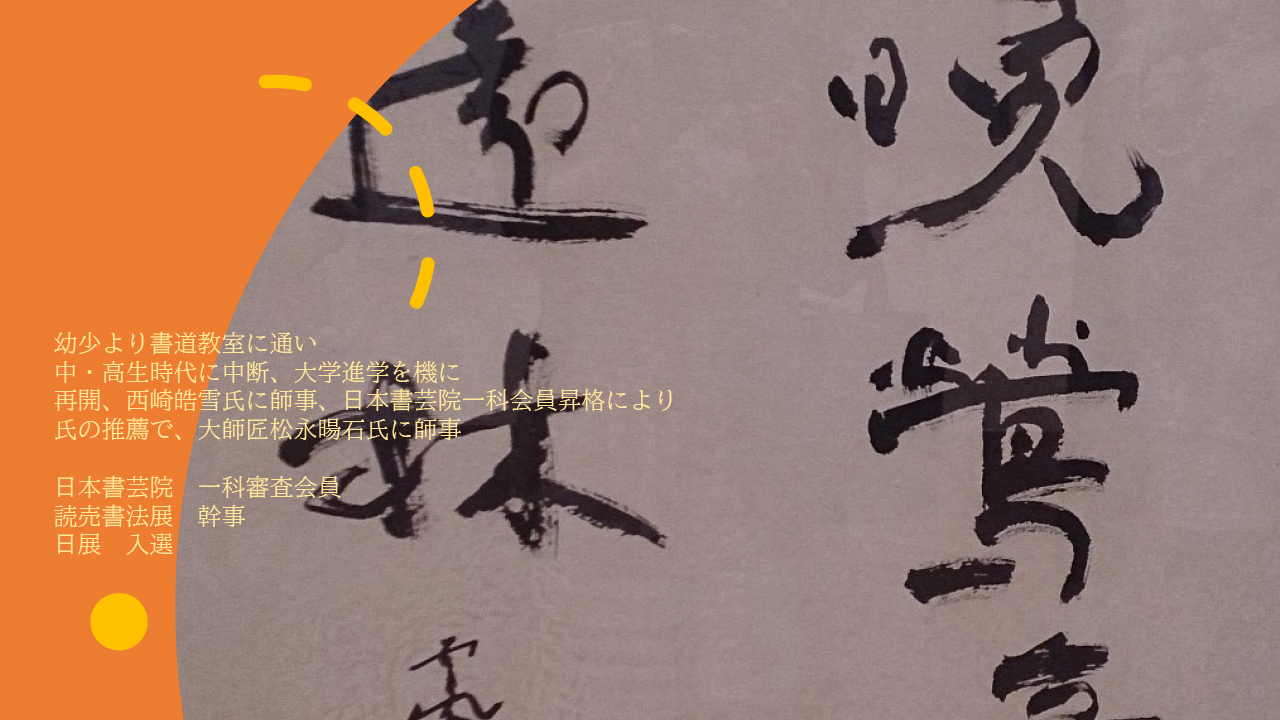 晩鶯
遠林
幼少より書道教室に通い
中・高生時代に中断、大学進学を機に
再開、西崎皓雪氏に師事、日本書芸院一科会員昇格により
氏の推薦で、大師匠松永暘石氏に師事
日本書芸院　一科審査会員
読売書法展　幹事
日展　入選